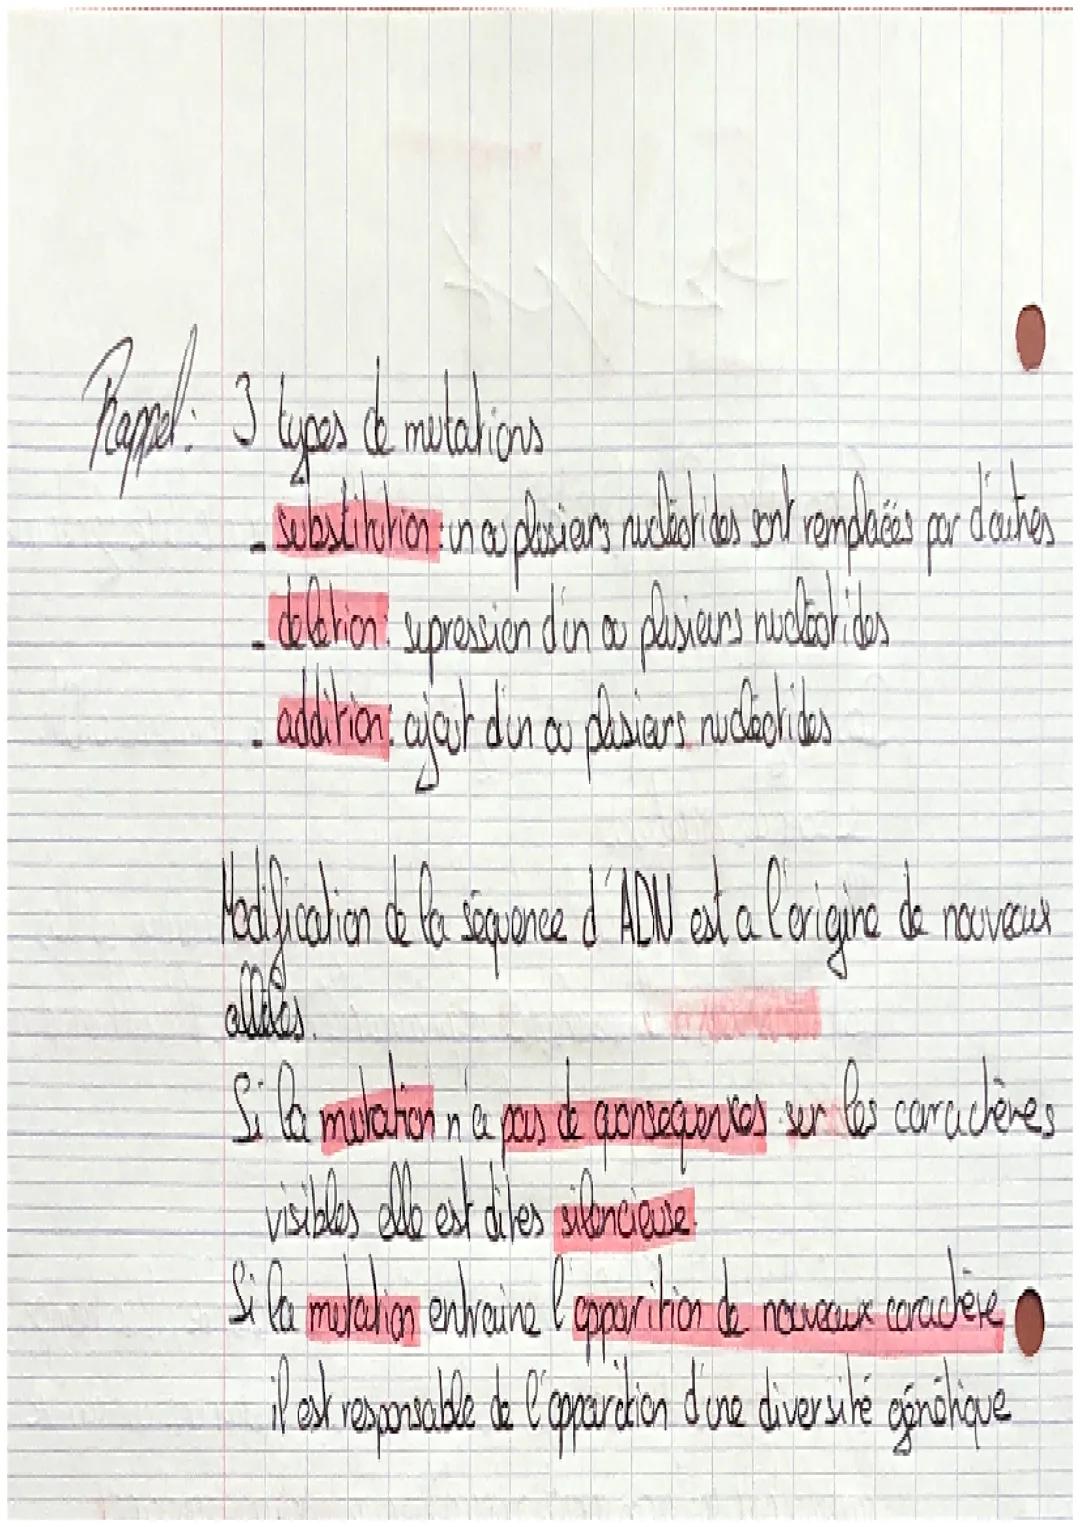 Rappel : 3 types de mutations
- substitution : un ou plusieurs nucléotides sont remplacées par d'autres
- deletion : supression d'un ou plusieurs nucléotides
- addition : ajout d'un ou plusieurs nucléotides
Modification de la séquence d'ADN est a l'origine de nouveaux
allèles.
Si la mutation n'a pas de qonsequences sur les caractères
visibles elle est dites silencieuse.
Si la mutation entraine l'apparition de nouveaux caractère
il est responsable de l'apparition d'une diversité génétique